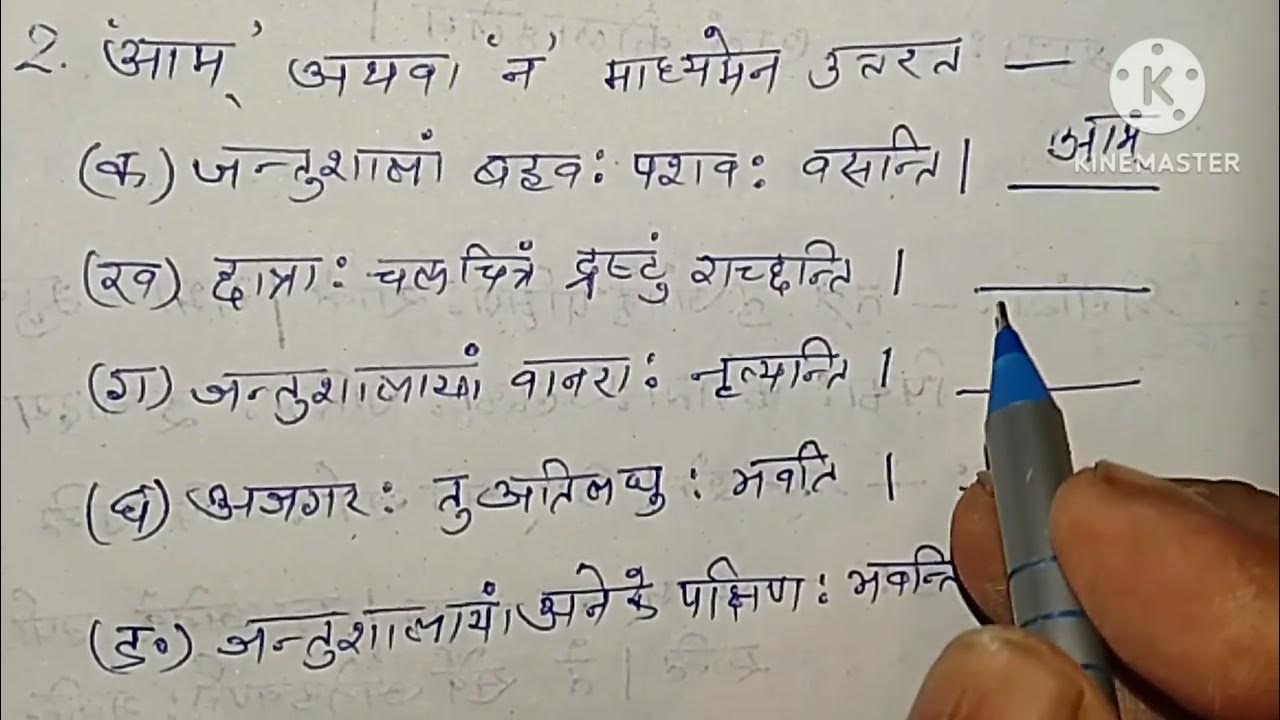 2. 'आम्' अथवा 'न' माध्यमेन उतरत —
(क) जन्तुशालां बहवः पशवः वसन्ति। आम
K
KINEMASTER
(ख) छात्राः चलचित्रं द्रष्टुं गच्छन्ति।
(ग) जन्तुशालायां वानराः नृत्यन्ति।
(घ) अजगरः तु अतिलघुः भवति।
(ङ) जन्तुशालायां अनेके पक्षिणः भवन्ति